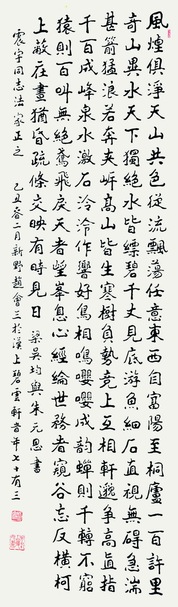 風煙俱淨天山共色從流飄蕩任意東西自富陽至桐廬一百許里
奇山異水天下獨絕水皆縹碧千丈見底游魚細石直視無礙急湍
甚箭猛浪若奔夾岸高山皆生寒樹負勢競上互相軒邈爭高直指
千百成峰泉水激石泠泠作響好鳥相鳴嚶嚶成韻蟬則千轉不窮
猿則百叫無絕鳶飛戾天者望峯息心經綸世務者窺谷忘反橫柯
上蔽在晝猶昏疏條交映有時見日 梁吳均與朱元思書
震宇同志法家正之 乙丑春二月新野趙會三於漢上碧雲軒 七十有三